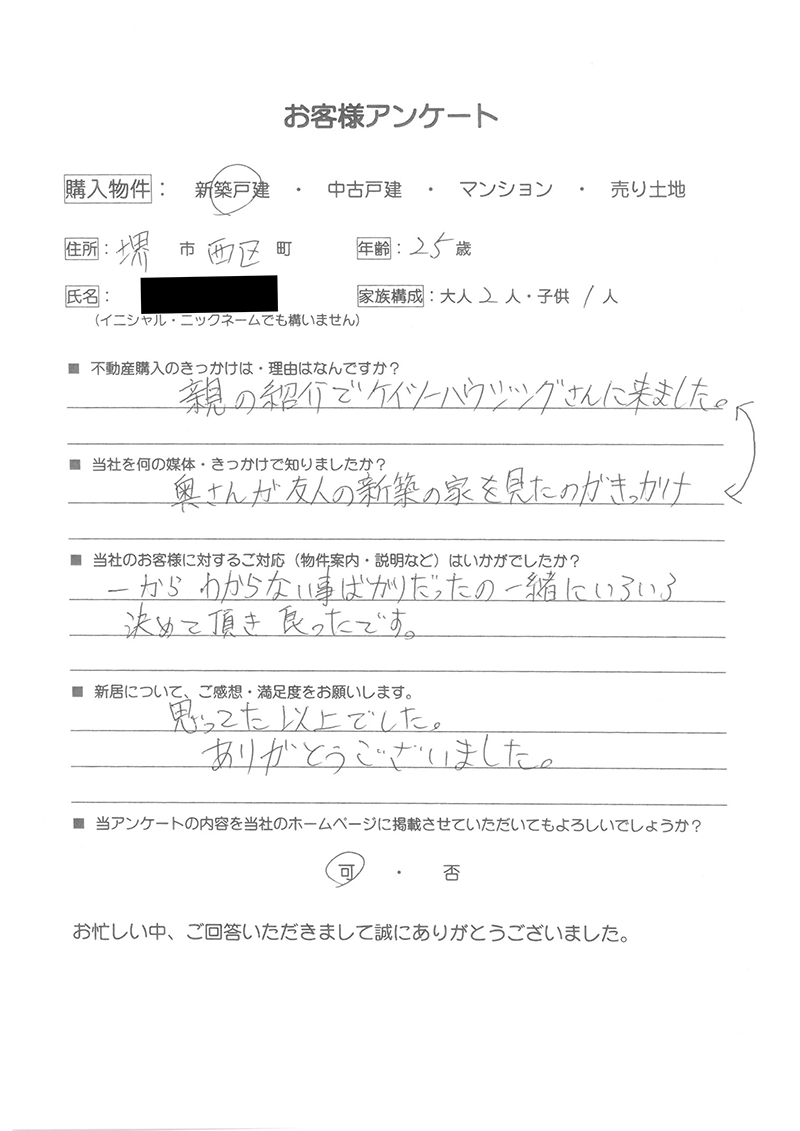 お客様アンケート
購入物件： 新築戸建 ・ 中古戸建 ・ マンション ・ 売り土地
住所：堺 市 西区 町 年齢：25歳
氏名： 家族構成：大人 2 人・子供 1 人
（イニシャル・ニックネームでも構いません）
■ 不動産購入のきっかけは・理由はなんですか？
親の紹介でケイツーハウジングさんに来ました。
■ 当社を何の媒体・きっかけで知りましたか？
奥さんが友人の新築の家を見たのがきっかけ
■ 当社のお客様に対するご対応（物件案内・説明など）はいかがでしたか？
一から わからない事ばかりだったの一緒にいろいろ
決めて頂き 良ったです。
■ 新居について、ご感想・満足度をお願いします。
思ってた以上でした。
ありがとうございました。
■ 当アンケートの内容を当社のホームページに掲載させていただいてもよろしいでしょうか？
可 ・ 否
お忙しい中、ご回答いただきまして誠にありがとうございました。